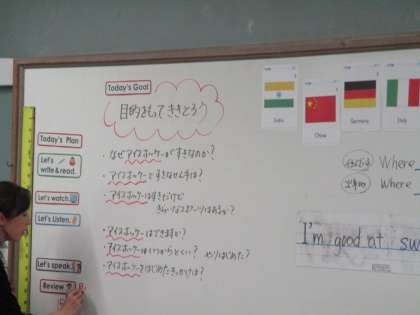 Today's Goal
目的をもってききとろう
Today's Plan
Let's write & read.
Let's watch.
Let's Listen.
Let's speak.
Review
・なぜアイスホッケーがすきなのか?
・アイスホッケーですきなせん手は?
・アイスホッケーはすきだけど
きらいなスポーツはあるか?
・アイスホッケーはできますか?
・アイスホッケーはいつからとくい?
・アイスホッケーをはじめたきっかけは?
India
China
Germany
Italy
Where
Where
I'm good at sw